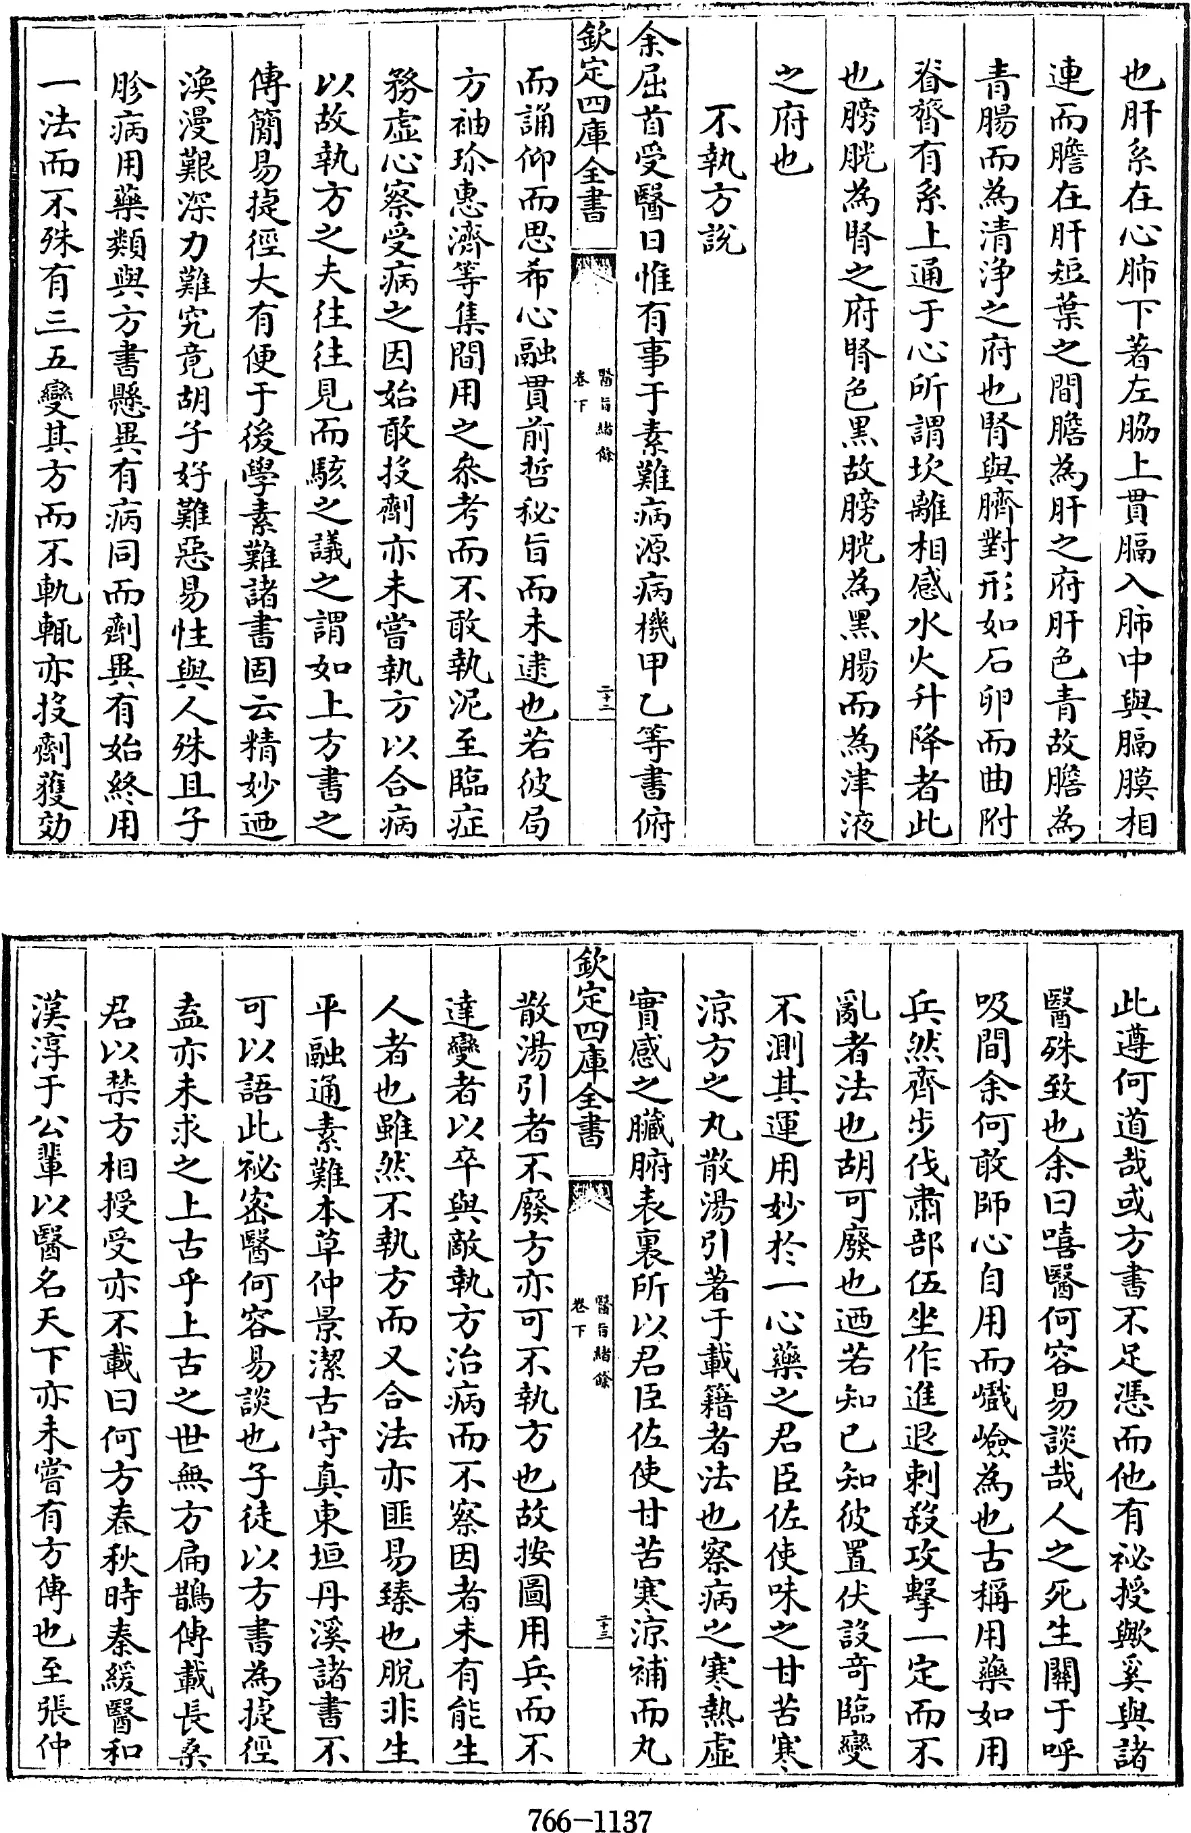 也肝系在心肺下著左脇上貫膈入肺中與膈膜相
連而膽在肝短葉之間膽為肝之府肝色青故膽為
青腸而為清浄之府也腎與臍對形如石卵而曲附
脊膂有系上通于心所謂坎離相感水火升降者此
也膀胱為腎之府腎色黒故膀胱為黒腸而為津液
之府也
不執方說
余屈首受醫日惟有事于素難病源病機甲乙等書俯
欽定四庫全書
醫旨緒餘
卷下
二十二
而誦仰而思希心融貫前哲秘旨而未逮也若彼局
方袖珍惠濟等集間用之叅考而不敢執泥至臨症
務虛心察受病之因始敢投劑亦未嘗執方以合病
以故執方之夫往往見而駭之議之謂如上方書之
傳簡易捷徑大有便于後學素難諸書固云精妙廼
渙漫艱深力難究竟胡子好難惡易性與人殊且子
胗病用藥類與方書懸異有病同而劑異有始終用
一法而不殊有三五變其方而不軌輒亦投劑獲効
此遵何道哉或方書不足憑而他有祕授歟奚與諸
醫殊致也余曰嘻醫何容易談哉人之死生關于呼
吸間余何敢師心自用而巇嶮為也古稱用藥如用
兵然齊步伐肅部伍坐作進退刺殺攻擊一定而不
亂者法也胡可廢也廼若知已知彼置伏設奇臨變
不測其運用妙於一心藥之君臣佐使味之甘苦寒
涼方之丸散湯引著于載籍者法也察病之寒熱虛
實感之臟腑表裏所以君臣佐使甘苦寒涼補而丸
欽定四庫全書
醫旨緒餘
卷下
二十三
散湯引者不廢方亦可不執方也故按圖用兵而不
達變者以卒與敵執方治病而不察因者未有能生
人者也雖然不執方而又合法亦匪易臻也脫非生
平融通素難本草仲景潔古守真東垣丹溪諸書不
可以語此祕密醫何容易談也子徒以方書為捷徑
盍亦未求之上古乎上古之世無方扁鵲傳載長桑
君以禁方相授受亦不載曰何方春秋時秦緩醫和
漢淳于公輩以醫名天下亦未嘗有方傳也至張仲
766-1137